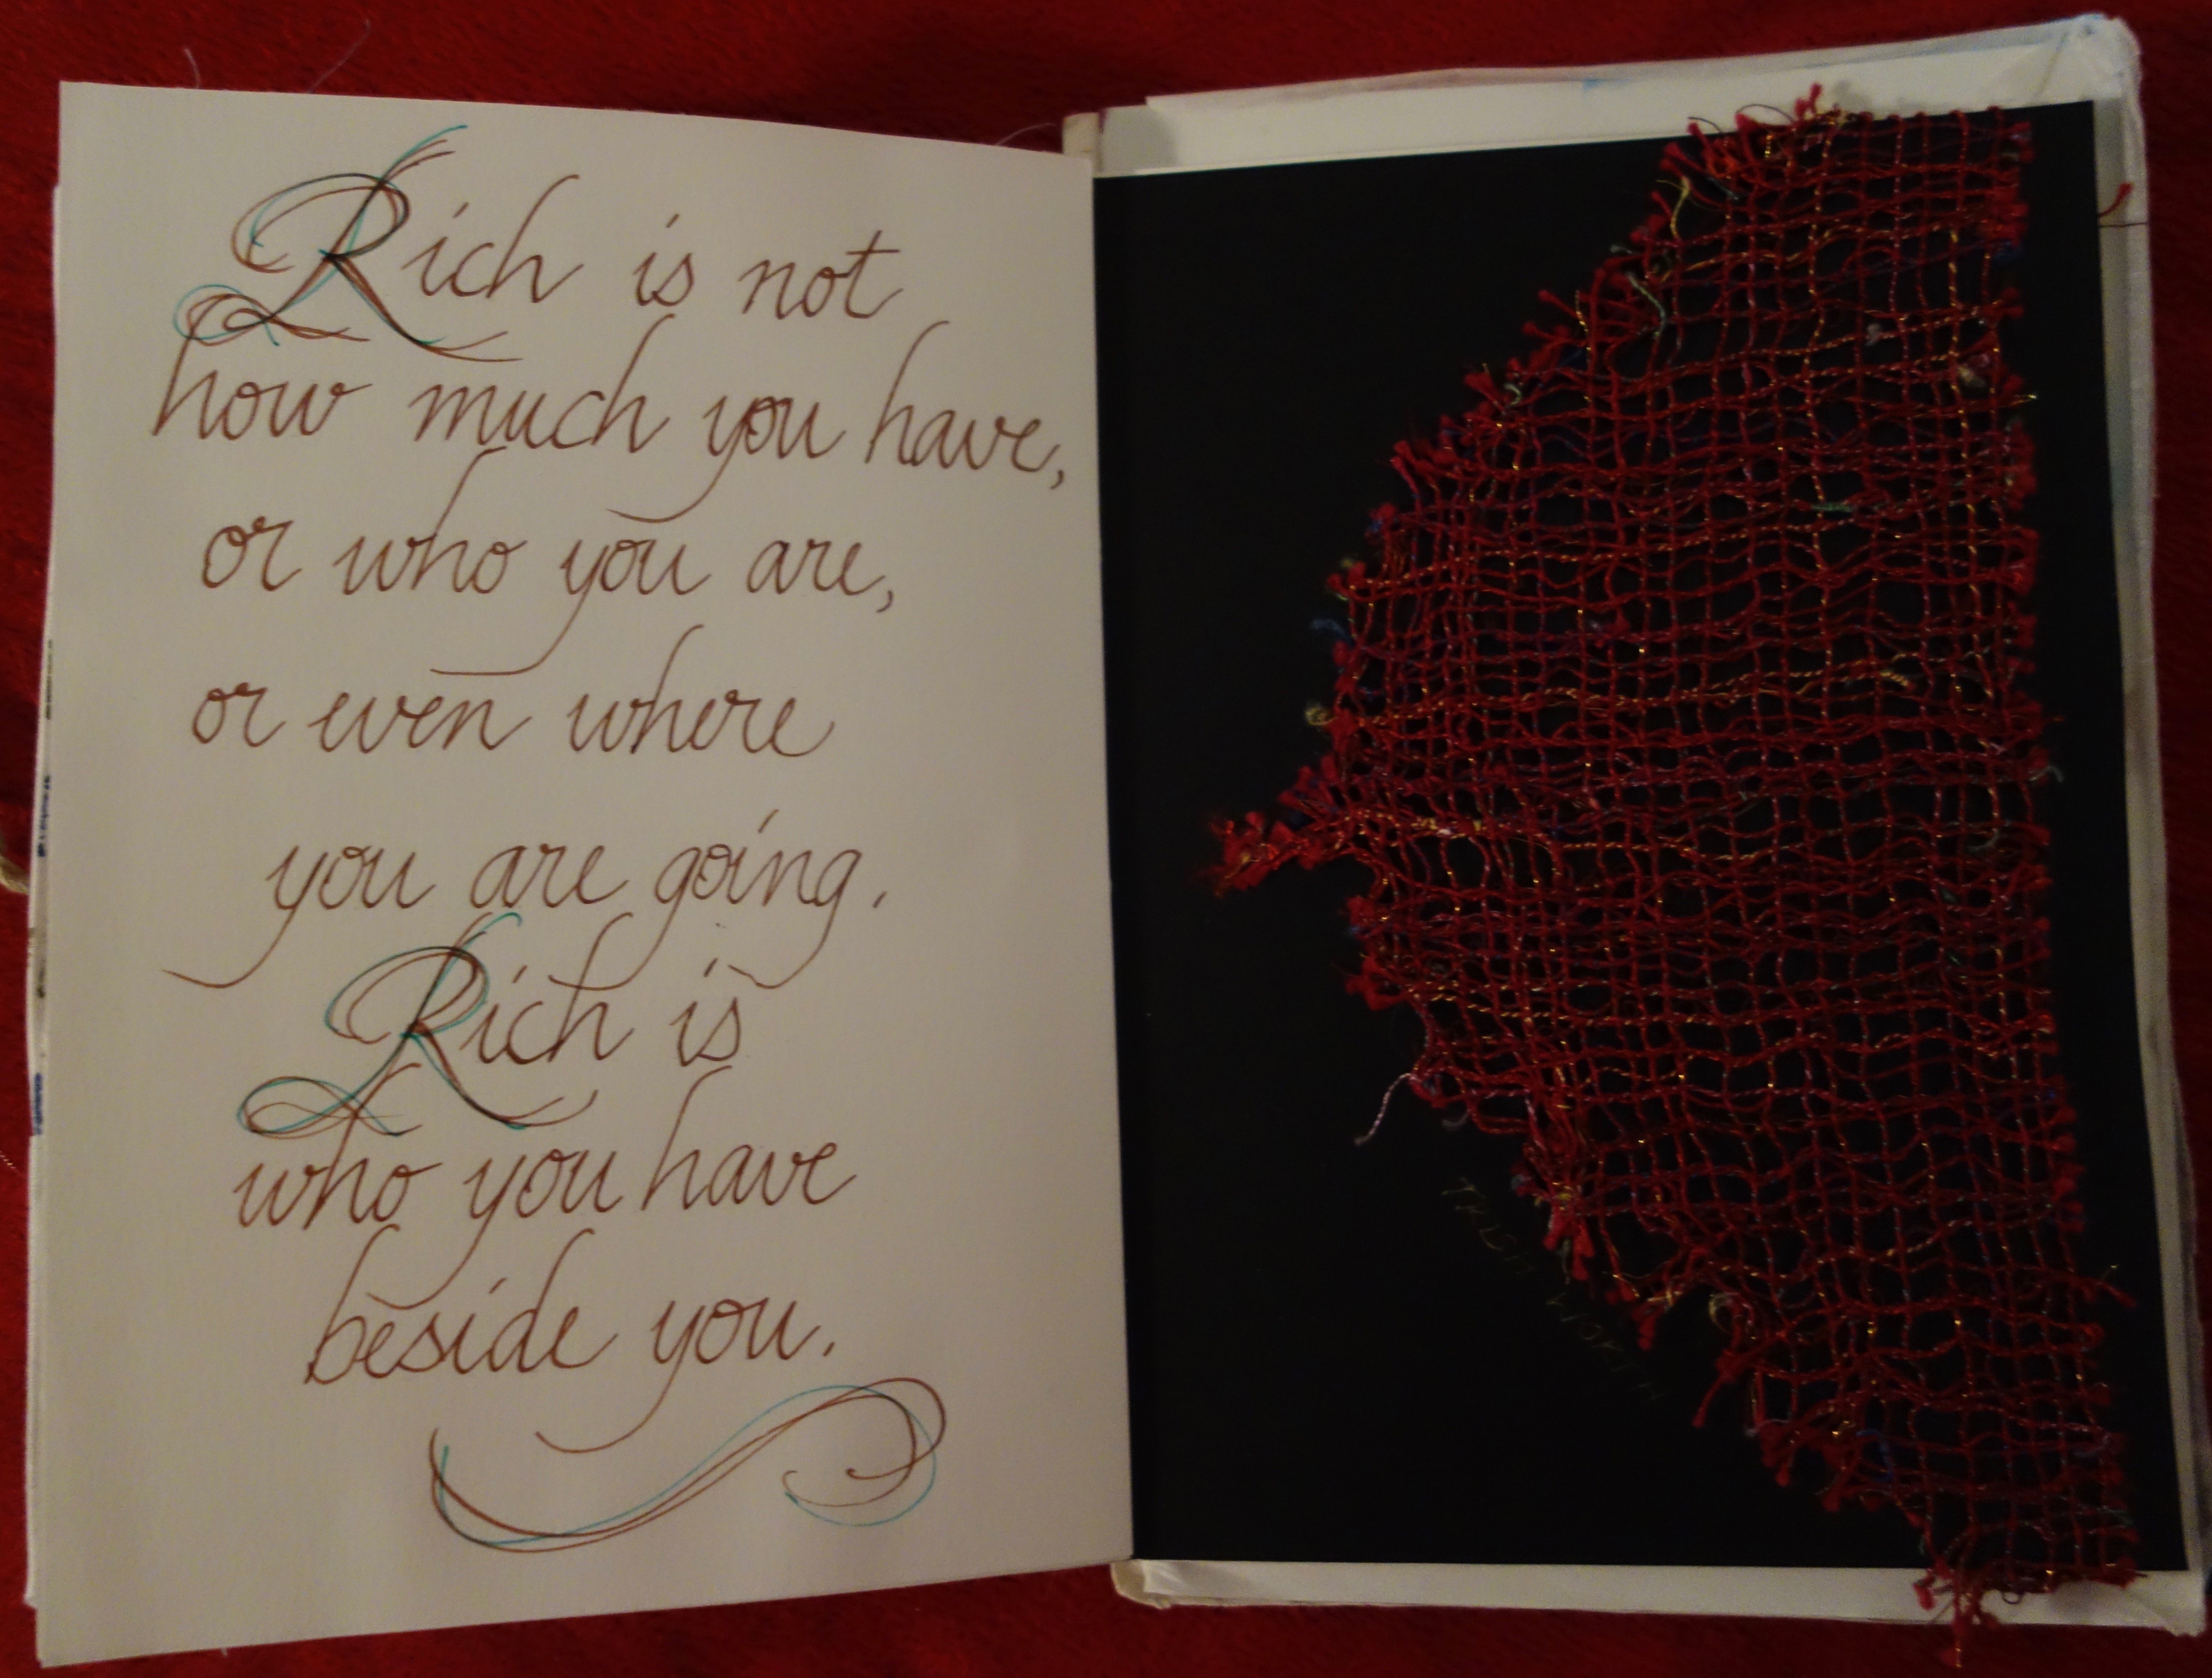 Rich is not
how much you have,
or who you are,
or even where
you are going.
Rich is
who you have
beside you.